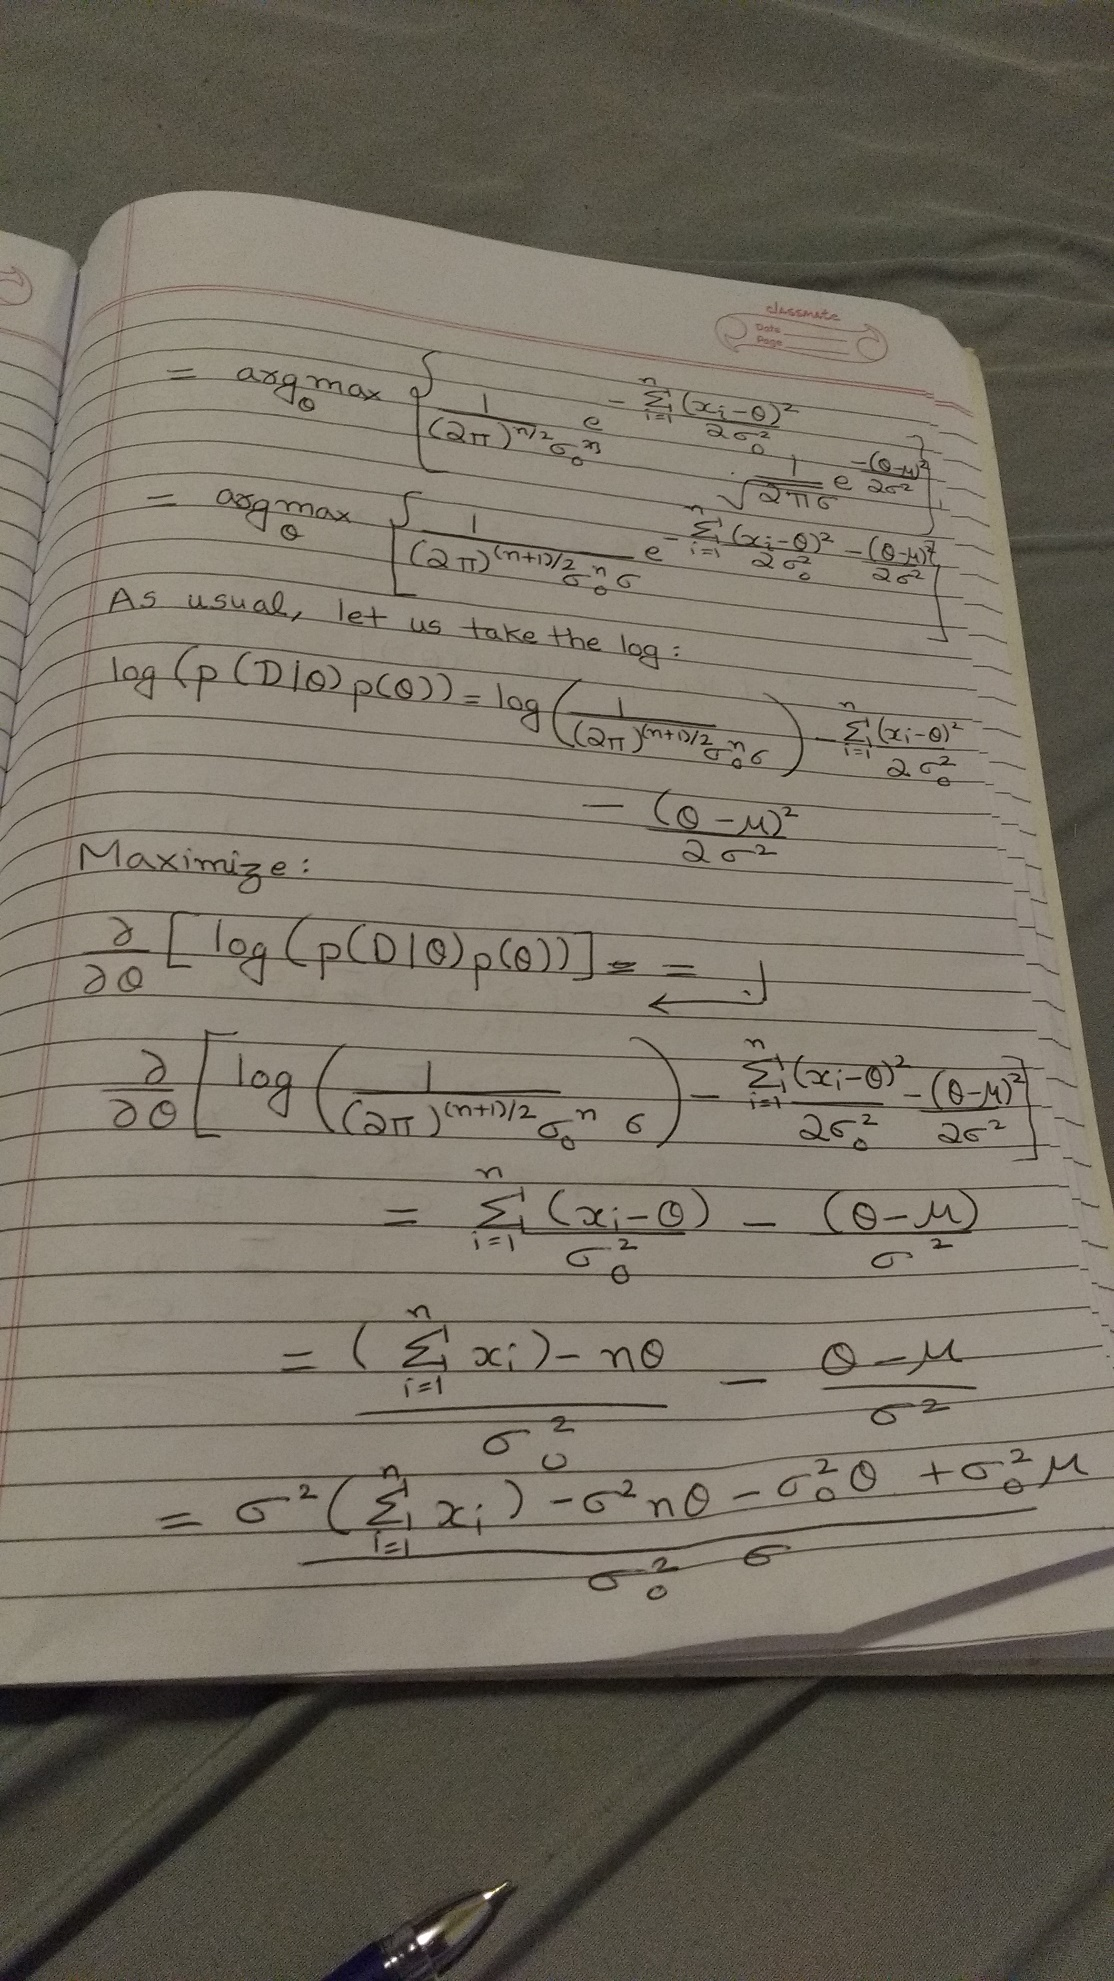 classmate
Date
Page
= argmax_θ [ 1/((2π)^(n/2) σ₀^n) e^(-Σ_{i=1}^{n} (xᵢ-θ)²/2σ₀²)
1/√(2πσ) e^(-(θ-μ)²/2σ²) ]
= argmax_θ [ 1/((2π)^((n+1)/2) σ₀^n σ) e^(-Σ_{i=1}^{n} (xᵢ-θ)²/2σ₀² - (θ-μ)²/2σ²) ]
As usual, let us take the log:
log(p(D|θ)p(θ)) = log(1/((2π)^((n+1)/2) σ₀^n σ)) - Σ_{i=1}^{n} (xᵢ-θ)²/2σ₀²
- (θ-μ)²/2σ²
Maximize:
∂/∂θ [log(p(D|θ)p(θ))] = = ↵
∂/∂θ [log(1/((2π)^((n+1)/2) σ₀^n σ)) - Σ_{i=1}^{n} (xᵢ-θ)²/2σ₀² - (θ-μ)²/2σ²]
= Σ_{i=1}^{n} (xᵢ-θ)/σ₀² - (θ-μ)/σ²
= ((Σ_{i=1}^{n} xᵢ) - nθ)/σ₀² - (θ-μ)/σ²
= (σ²(Σ_{i=1}^{n} xᵢ) - σ²nθ - σ₀²θ + σ₀²μ)/(σ₀² σ)